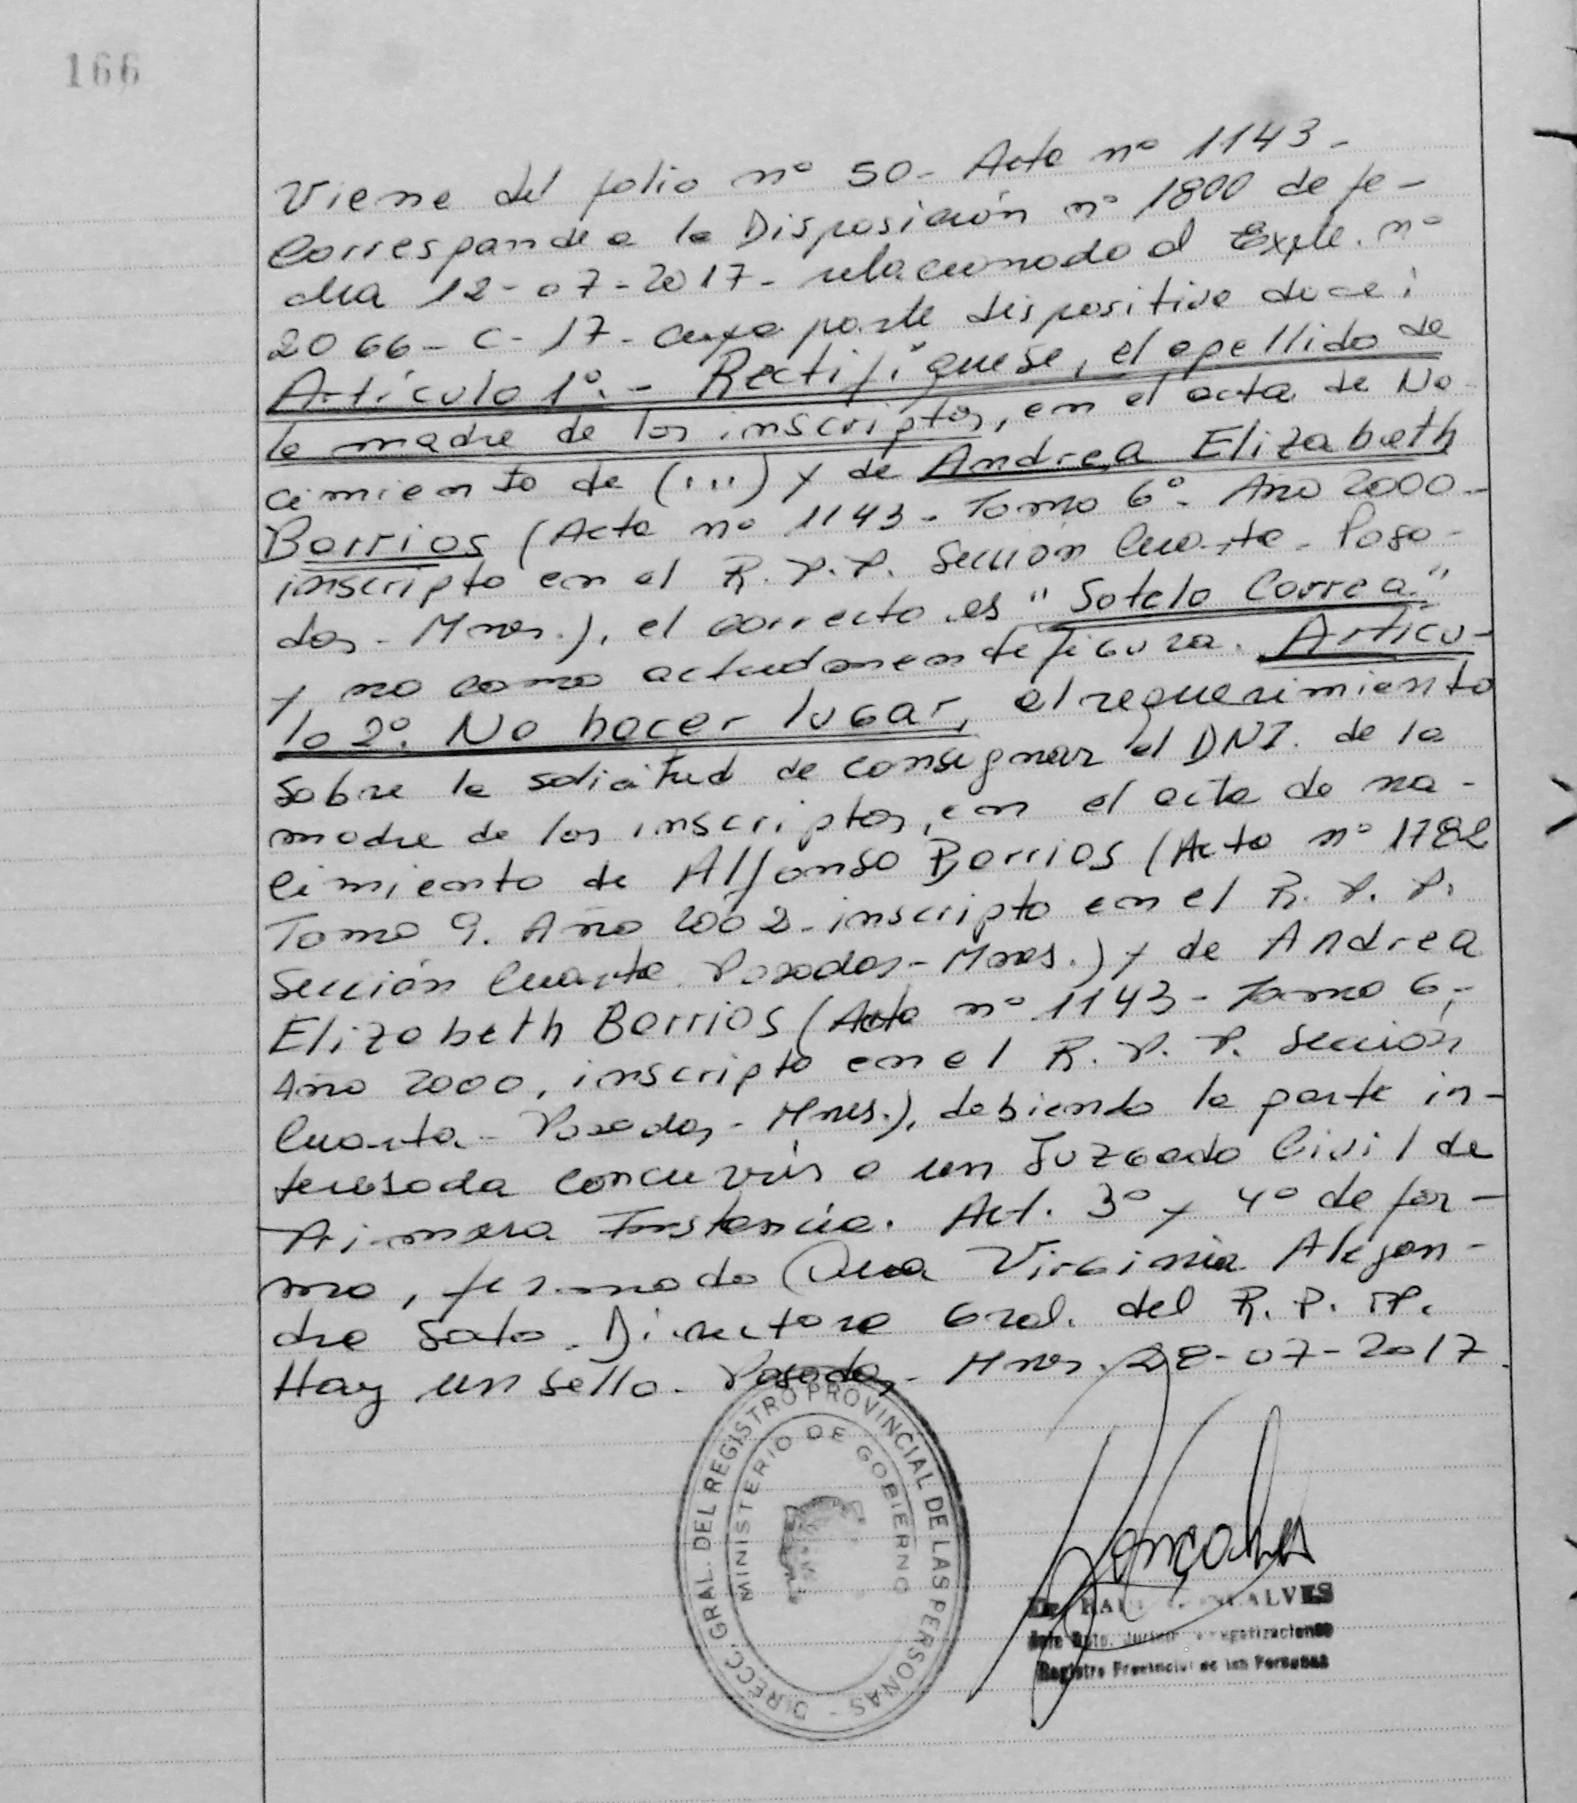 166
Viene del folio nº 50- Acta nº 1143-
Corresponde a la Disposición nº 1800 de fe-
cha 12-07-2017- relacionado al Expte. nº
2066-C-17- cuya parte dispositiva dice:
Artículo 1º.- Rectifíquese, el apellido de
la madre de los inscriptos, en el acta de Na-
cimiento de (...) y de Andrea Elizabeth
Barrios (Acta nº 1143- Tomo 6º- Año 2000-
inscripto en el R.P.P. Sección Cuarta- Posa-
das- Mnes.), el correcto es "Sotelo Correa"
y no como actualmente figura. Artícu-
lo 2º. No hacer lugar, al requerimiento
sobre la solicitud de consignar el DNI. de la
madre de los inscriptos, en el acta de na-
cimiento de Alfonso Barrios (Acta nº 1782
Tomo 9. Año 2002- inscripto en el R.P.P.
Sección Cuarta Posadas- Mnes.) y de Andrea
Elizabeth Barrios (Acta nº 1143- Tomo 6-
Año 2000, inscripto en el R.P.P. Sección
Cuarta- Posadas- Mnes.), debiendo la parte in-
teresada concurrir a un Juzgado Civil de
Primera Instancia. Art. 3º y 4º de for-
ma, firmado Virginia Alejan-
dra Directora Gral. del R.P.P.
Hay un sello- Posadas- Mnes. 28-07-2017
DIRECC. GRAL. DEL REGISTRO PROVINCIAL DE LAS PERSONAS -
MINISTERIO DE GOBIERNO
Gonçalves
Registro Provincial de las Personas